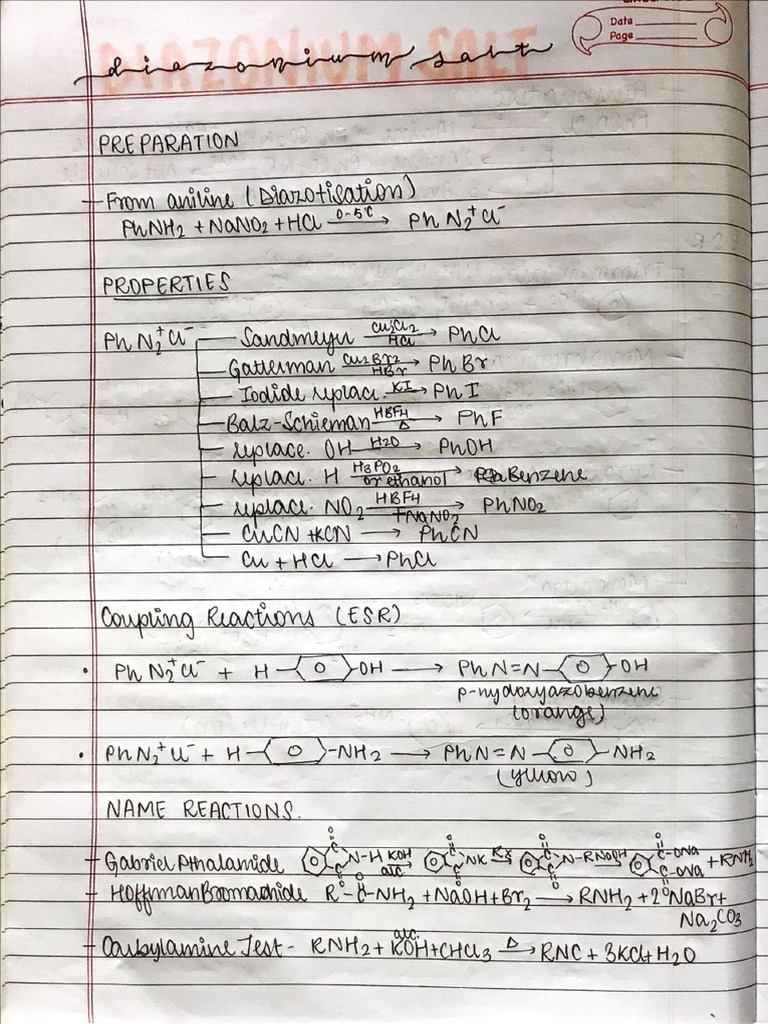 Date
Page
diazonium salt
PREPARATION
- From aniline (Diazotisation)
PhNH2 + NaNO2 + HCl 0-5°C → PhN2+Cl-
PROPERTIES
PhN2+Cl- Sandmeyer Cu2Cl2 HCl → PhCl
Gatterman Cu2Br2 HBr → PhBr
Iodide replace. KI → PhI
Balz-Schieman HBF4 Δ → PhF
replace. OH H2O → PhOH
replace. H H3PO2 or ethanol → Benzene
replace. NO2 HBF4 +NaNO2 → PhNO2
CuCN + KCN → PhCN
Cu + HCl → PhCl
Coupling Reactions (ESR)
• PhN2+Cl- + H-⌬-OH → PhN=N-⌬-OH
p-hydoxyazobenzene
(orange)
• PhN2+Cl- + H-⌬-NH2 → PhN=N-⌬-NH2
(yellow)
NAME REACTIONS.
- Gabriel Pthalamide C=O N-H KOH alc → C=O NK RX → C=O N-R NaOH → C-ONa C-ONa + RNH2
- Hoffman Bromamide R-C-NH2 + NaOH + Br2 → RNH2 + 2NaBr +
Na2CO3
- Carbylamine Test - RNH2 + alc. KOH + CHCl3 Δ → RNC + 3KCl + H2O